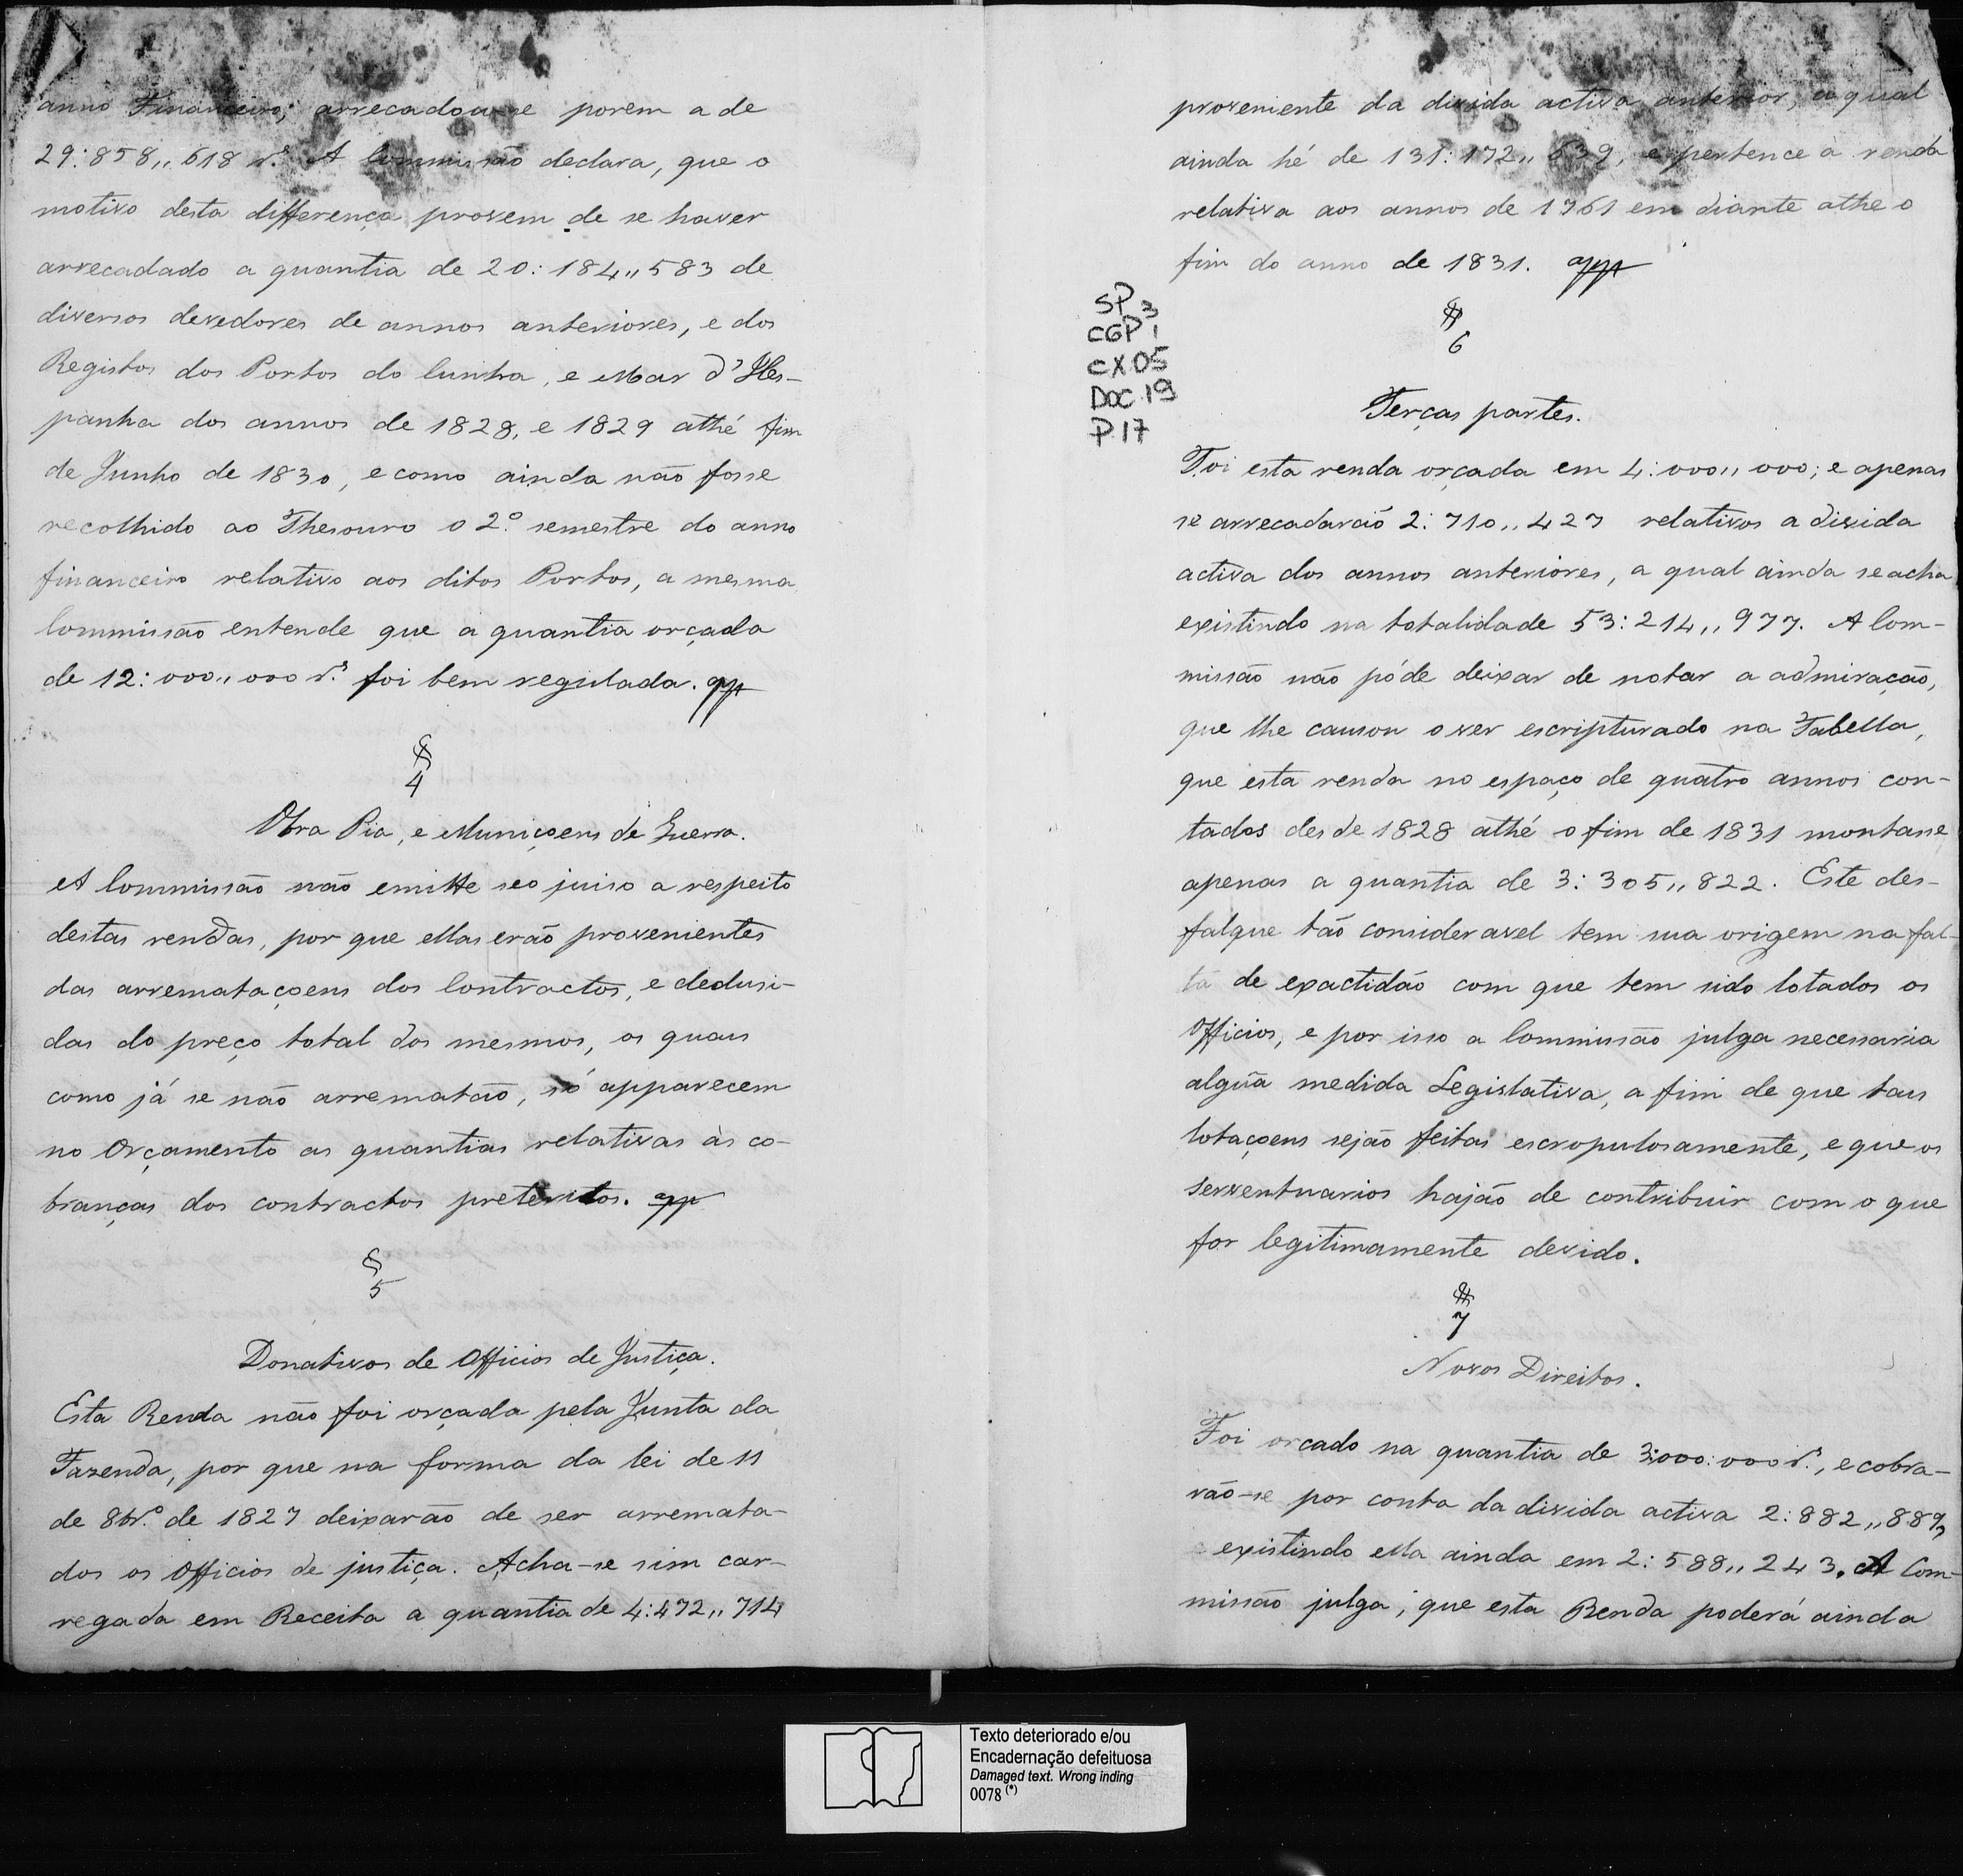 anno Financeiro; arrecadou-se porem a de
29:858,,618 rˢ. A Commissão declara, que o
motivo desta differença provem de se haver
arrecadado a quantia de 20:184,,583 de
diversos devedores de annos anteriores, e dos
Registos dos Portos do Cunha, e Mar d'Hes-
panha dos annos de 1828, e 1829 athé fim
de Junho de 1830, e como ainda não fosse
recolhido ao Thesouro o 2.º semestre do anno
financeiro relativo aos ditos Portos, a mesma
Commissão entende que a quantia orçada
de 12:000,,000 rˢ. foi bem regulada.
§
4
Obra Pia, e Muniçoens de Guerra.
A Commissão não emitte seo juiso a respeito
destas rendas, por que ellas erão provenientes
das arremataçoens dos Contractos, e dedusi-
das do preço total dos mesmos, os quaes
como já se não arrematão, só apparecem
no Orçamento as quantias relativas às co-
branças dos contractos preteritos.
§
5
Donativos de Officios de Justiça.
Esta Renda não foi orçada pela Junta da
Fazenda, por que na forma da lei de 11
de 8br.º de 1827 deixarão de ser arremata-
dos os Officios de justiça. Acha-se sim car-
regada em Receita a quantia de 4:472,,714
proveniente da divida activa anterior, a qual
ainda hé de 131:172,,639, e pertence a renda
relativa aos annos de 1761 em diante athe o
fim do anno de 1831.
SP 3
CGP 1
CX 05
DOC. 19
P. 17
§
6
Terças partes.
Foi esta renda orçada em 4:000,,000; e apenas
se arrecadarão 2:710,,427 relativos a divida
activa dos annos anteriores, a qual ainda se acha
existindo na totalidade 53:214,,977. A Com-
missão não póde deixar de notar a admiração,
que lhe causou o ver escripturado na Tabella,
que esta renda no espaço de quatro annos con-
tados desde 1828 athé o fim de 1831 montasse
apenas a quantia de 3:305,,822. Este des-
falque tão consideravel tem sua origem na fal-
ta de exactidão com que tem sido lotados os
Officios, e por isso a Commissão julga necessaria
algũa medida Legislativa, a fim de que taes
lotaçoens sejão feitas escropulosamente, e que os
serventuarios hajão de contribuir com o que
for legitimamente devido.
§
7
Novos Direitos.
Foi orcado na quantia de 3:000:000 rˢ., e cobra-
rão-se por conta da divida activa 2:882,,889,
existindo ella ainda em 2:588,,243. A Com-
missão julga, que esta Renda poderá ainda
Texto deteriorado e/ou
Encadernação defeituosa
Damaged text. Wrong inding
0078 (*)